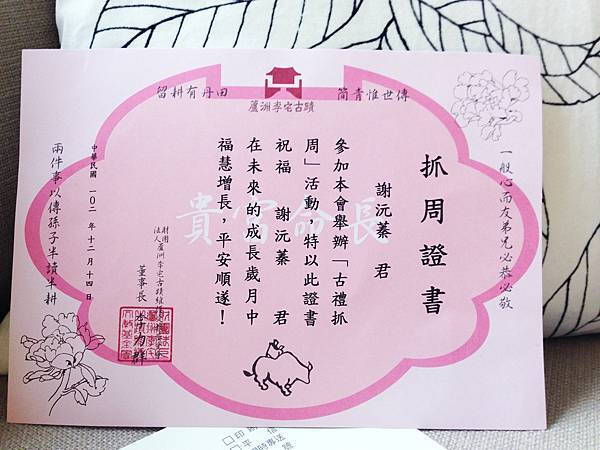 傳世惟青簡
田丹有耕留
蘆洲李宅古蹟
一般心而友弟兄必恭必敬
抓周證書
謝沅蓁 君
參加本會舉辦「古禮抓
周」活動，特以此證書
祝福 謝沅蓁 君
在未來的成長歲月中
福慧增長，平安順遂！
貴富命長
財團
法人蘆洲李宅古蹟維
董事長
中華民國 一〇二 年 十二 月 十四 日
兩件事以傳孫子半讀半耕
印
平 信
時事送